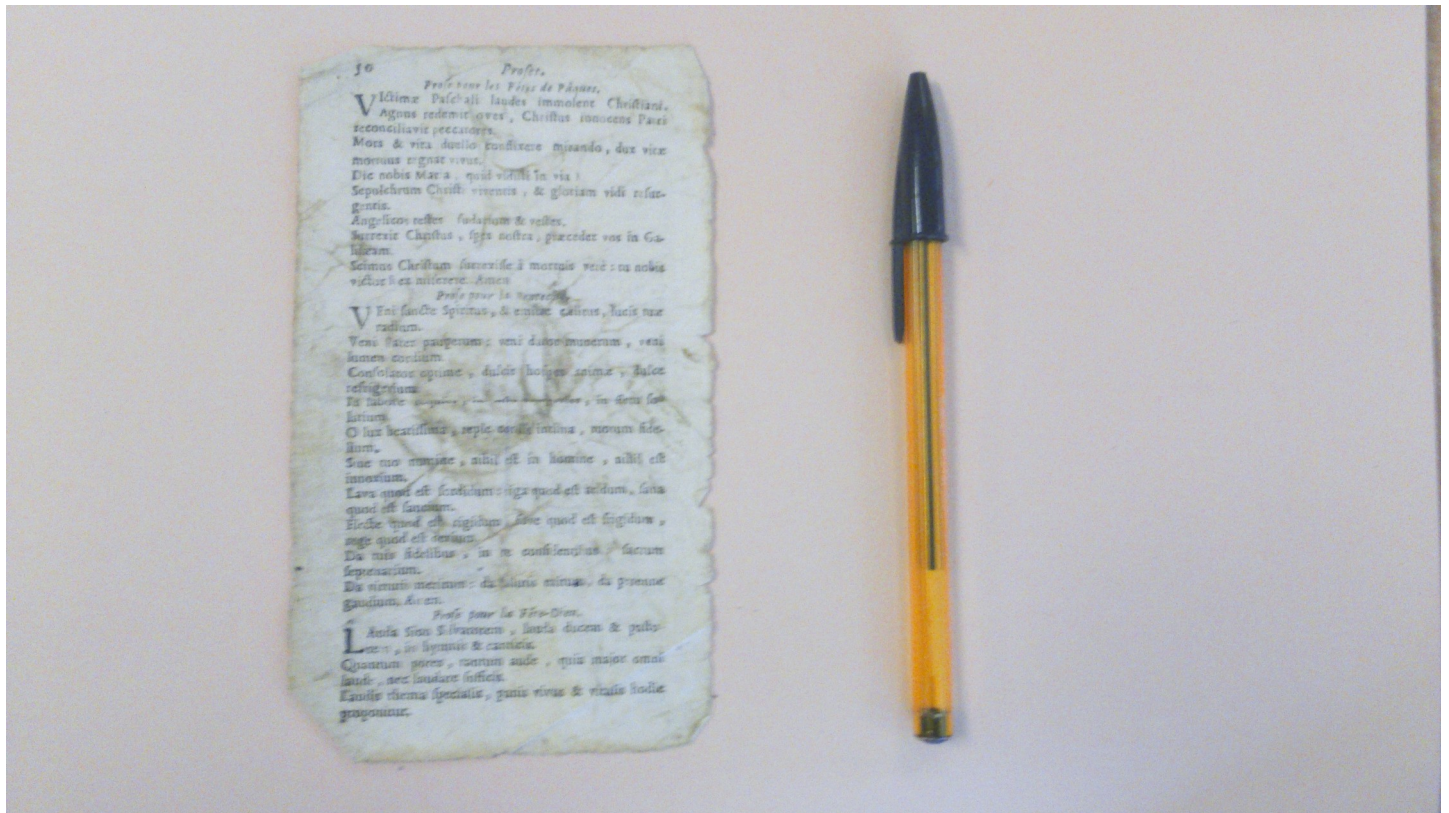 50 Proses.
Prose pour les Fêtes de Pâques.
VIctimæ Paschali laudes immolent Christiani.
Agnus redemit oves, Christus innocens Patri
reconciliavit peccatores.
Mors & vita duello conflixere mirando, dux vitæ
mortuus regnat vivus.
Dic nobis Maria, quid vidisti in via?
Sepulchrum Christi viventis, & gloriam vidi resur-
gentis.
Angelicos testes sudarium & vestes.
Surrexit Christus, spes nostra, præcedet vos in Ga-
lilæam.
Scimus Christum surrexisse à mortuis verè: tu nobis
victor Rex miserere. Amen
Prose pour la Pentecôte.
VEni sancte Spiritus, & emitte cælitus, lucis tuæ
radium.
Veni Pater pauperum; veni dator munerum, veni
lumen cordium.
Consolator optime, dulcis hospes animæ, dulce
refrigerium
In labore requies, in æstu temperies, in fletu so-
latium.
O lux beatissima, reple cordis intima, tuorum fide-
lium.
Sine tuo numine, nihil est in homine, nihil est
innoxium.
Lava quod est sordidum: riga quod est aridum, sana
quod est saucium.
Flecte quod est rigidum, fove quod est frigidum,
rege quod est devium.
Da tuis fidelibus, in te confidentibus, sacrum
septenarium.
Da virtutis meritum: da salutis exitum, da perenne
gaudium. Amen.
Prose pour la Fête-Dieu.
LAuda Sion Salvatorem, lauda ducem & pasto-
rem, in hymnis & canticis.
Quantum potes, tantum aude, quia major omni
laude, nec laudare sufficis.
Laudis thema specialis, panis vivus & vitalis hodie
proponitur.